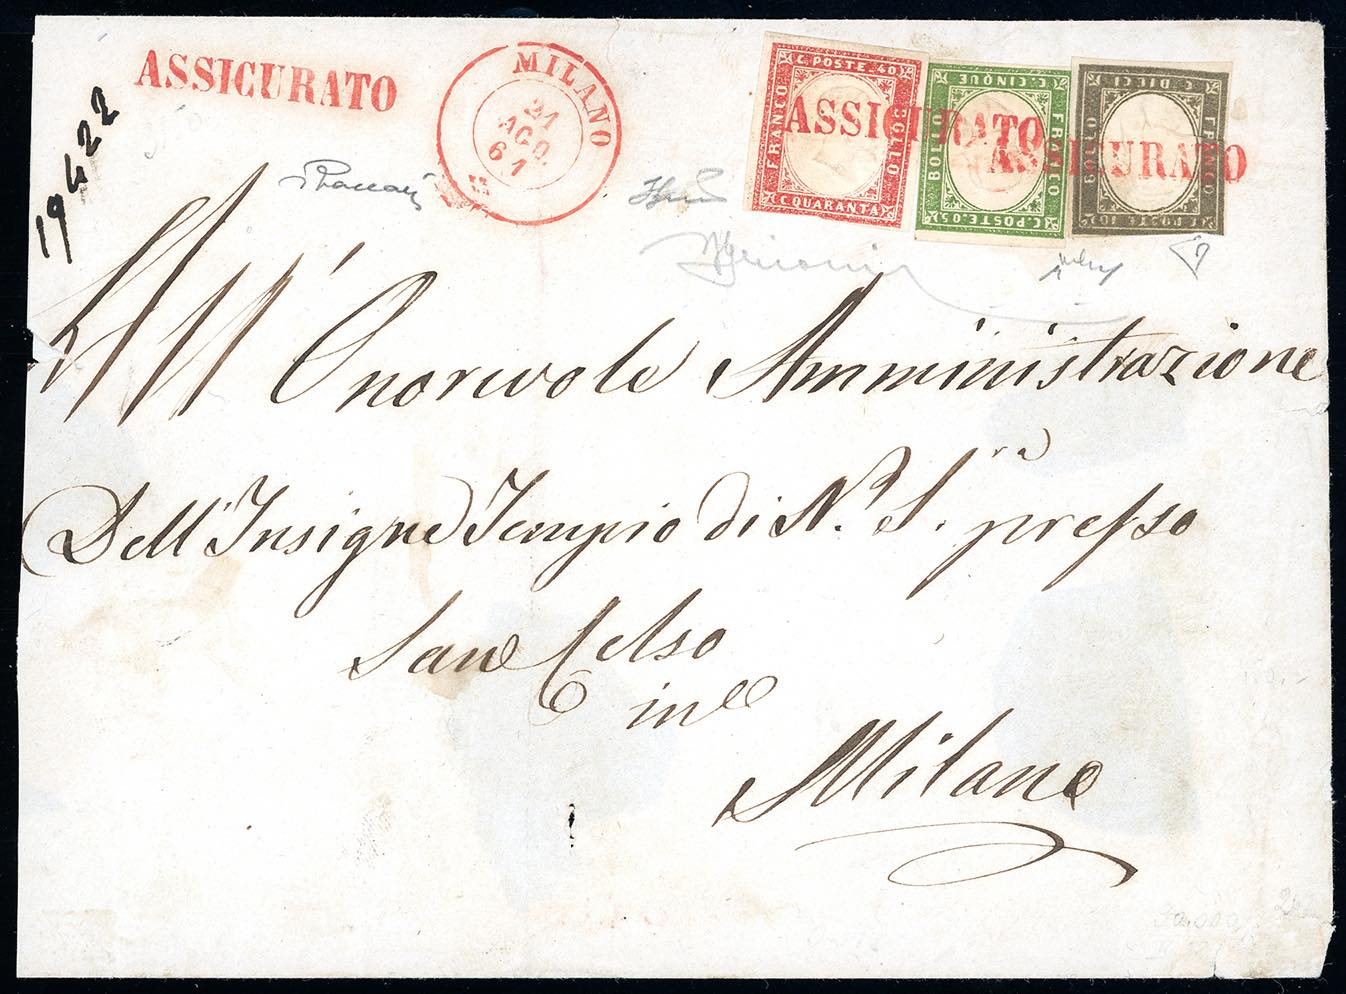 ASSICURATO
MILANO
21
AGO.
61
19422
C. POSTE. 40
FRANCO
BOLLO
C. QUARANTA
C. CINQUE
BOLLO
FRANCO
C. POSTE. 05
C. DIECI
BOLLO
FRANCO
C. POSTE. 10
ASSICURATO
ASSICURATO
All' Onorevole Amministrazione
Dell' Insigne Tempio di N.ª S.ʳᵃ presso
San Celso
in
Milano